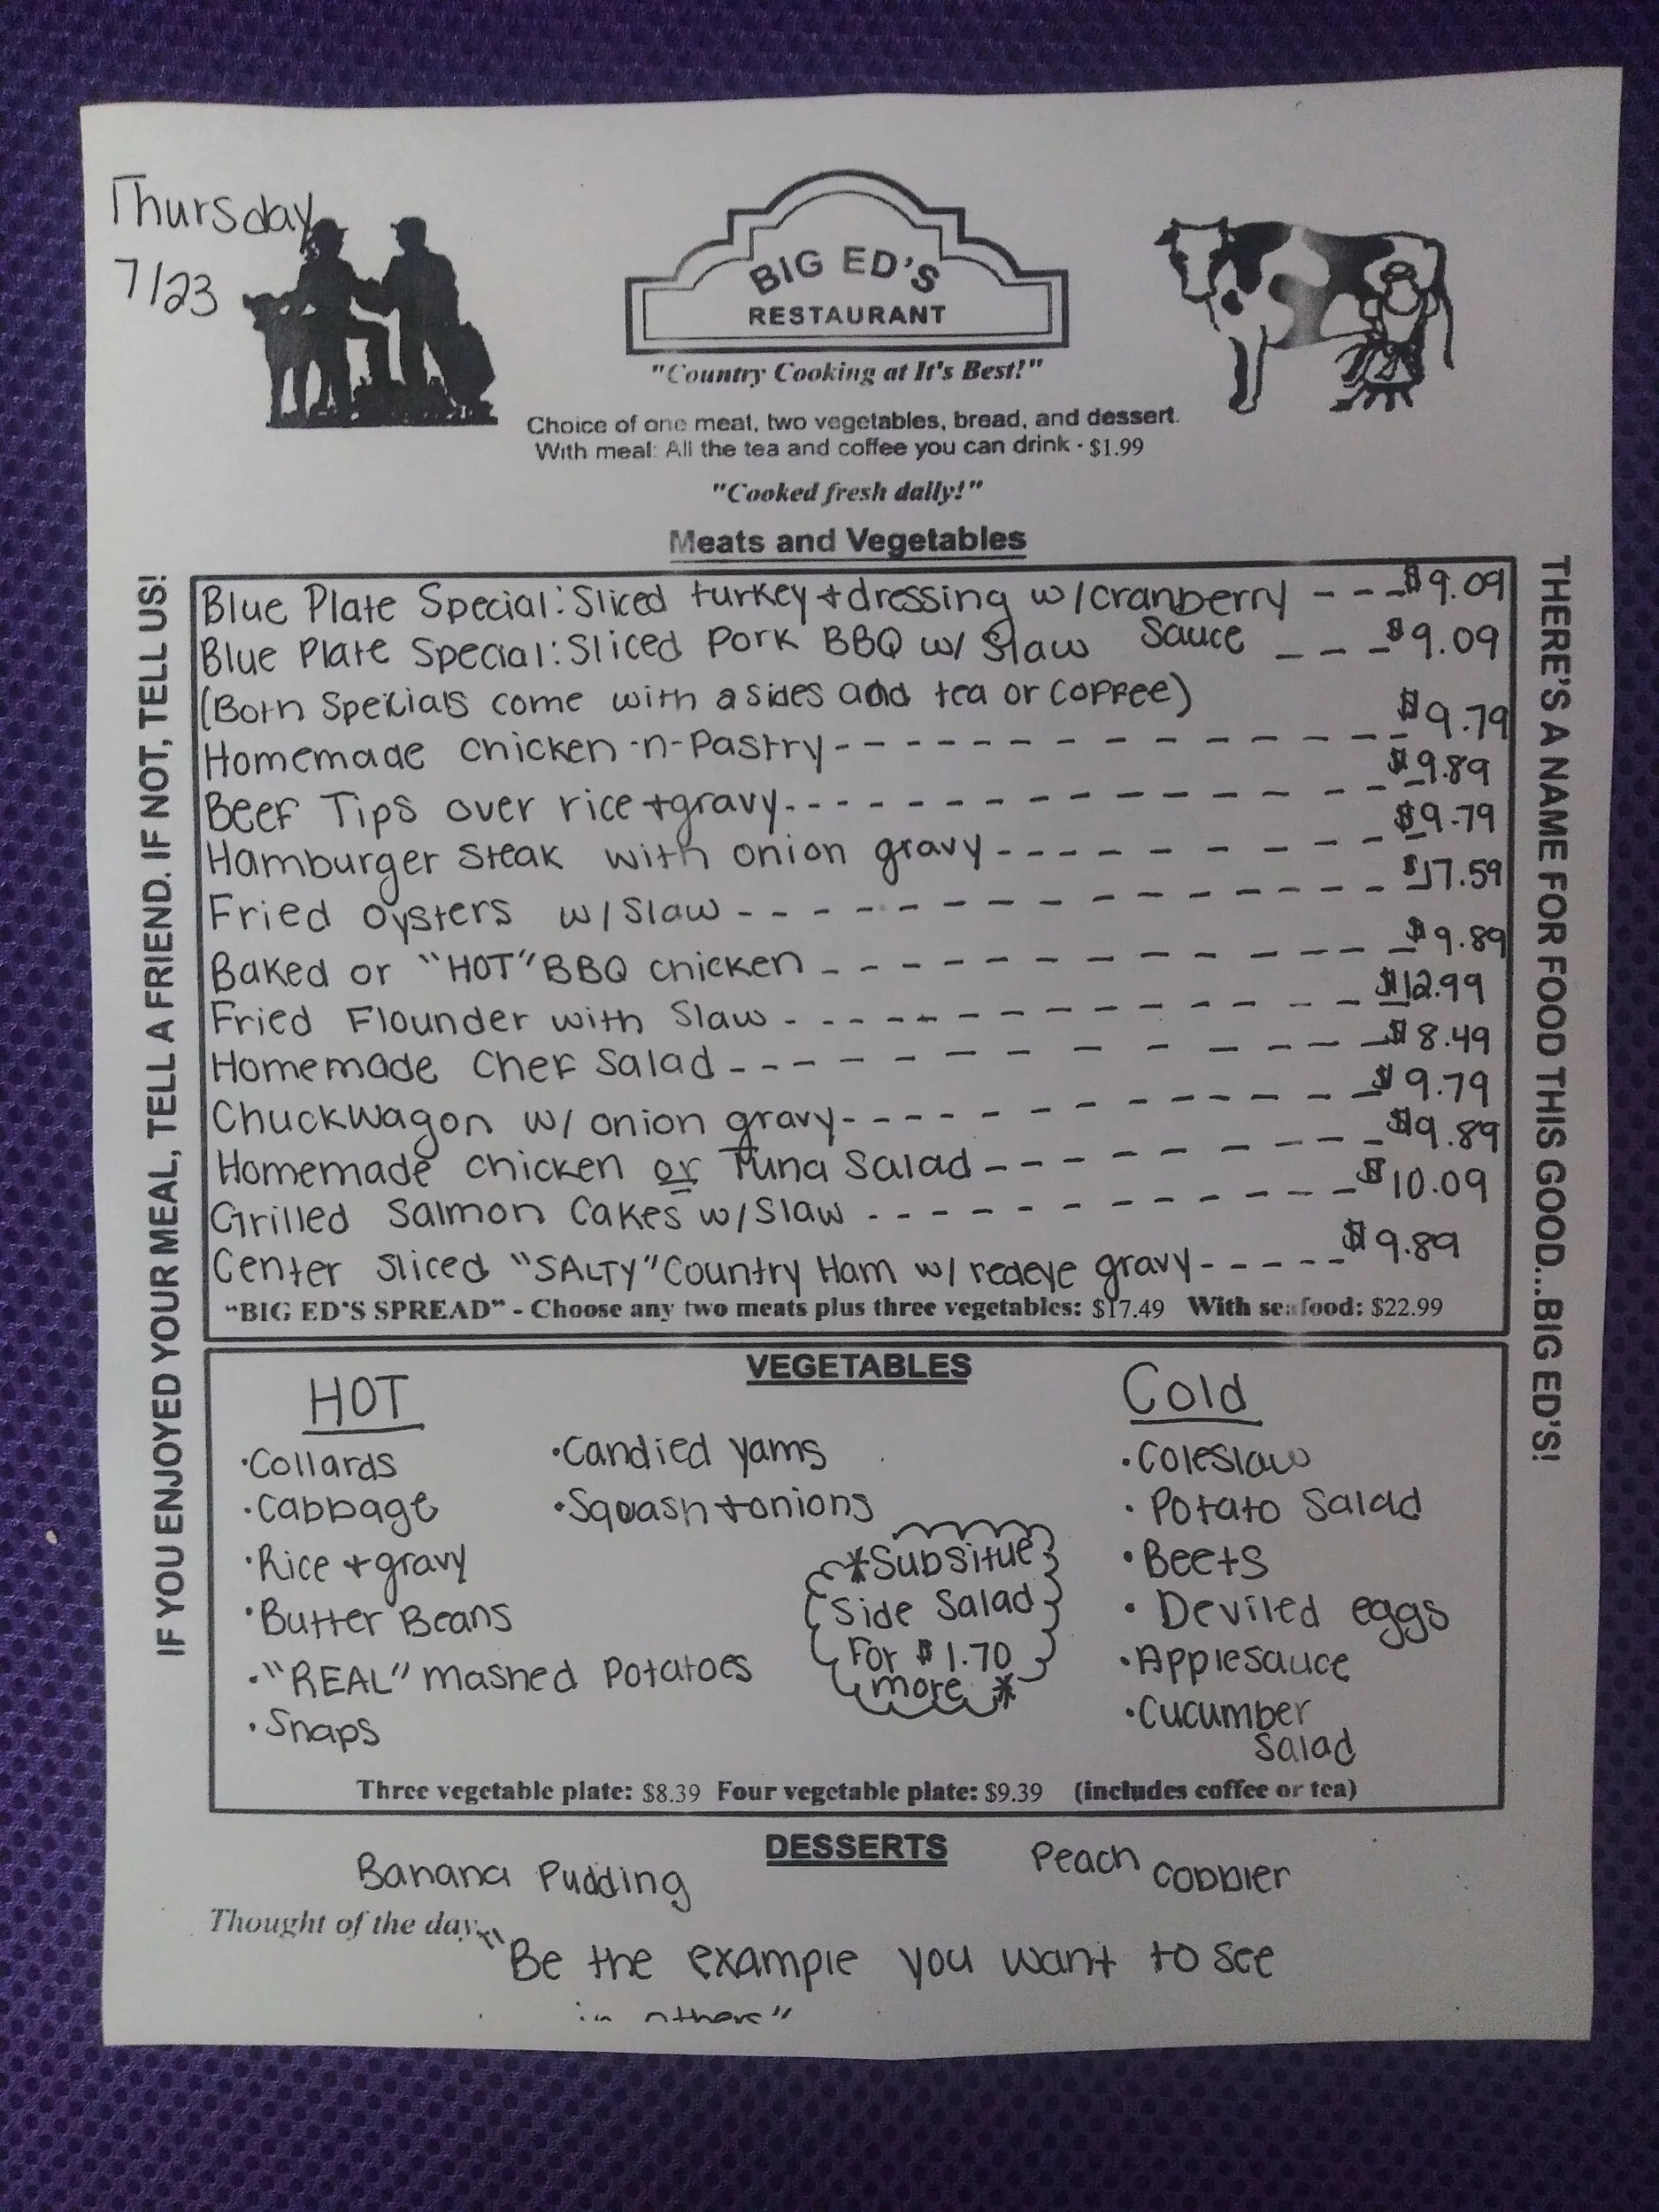 Thursday
7/23
BIG ED'S
RESTAURANT
"Country Cooking at It's Best!"
Choice of one meat, two vegetables, bread, and dessert.
With meal: All the tea and coffee you can drink - $1.99
"Cooked fresh daily!"
Meats and Vegetables
IF YOU ENJOYED YOUR MEAL, TELL A FRIEND. IF NOT, TELL US!
Blue Plate Special: Sliced turkey + dressing w/cranberry Sauce --- $9.09
Blue Plate Special: Sliced Pork BBQ w/ Slaw --- $9.09
(Both Specials come with 2 sides and tea or coffee)
Homemade chicken-n-Pastry --- $9.79
Beef Tips over rice + gravy --- $9.89
Hamburger Steak with onion gravy --- $9.79
Fried Oysters w/Slaw --- $17.59
Baked or "HOT" BBQ chicken --- $9.89
Fried Flounder with Slaw --- $12.99
Homemade Chef Salad --- $8.49
Chuckwagon w/ onion gravy --- $9.79
Homemade chicken or Tuna Salad --- $9.89
Grilled Salmon Cakes w/Slaw --- $10.09
Center Sliced "SALTY" Country Ham w/ redeye gravy --- $9.89
"BIG ED'S SPREAD" - Choose any two meats plus three vegetables: $17.49 With seafood: $22.99
THERE'S A NAME FOR FOOD THIS GOOD...BIG ED'S!
VEGETABLES
HOT
·Collards
·Cabbage
·Rice + gravy
·Butter Beans
·"REAL" mashed Potatoes
·Snaps
·Candied yams
·Squash + onions
*Subsitue
Side Salad
For $1.70
more *
Cold
·Coleslaw
·Potato Salad
·Beets
·Deviled eggs
·Applesauce
·Cucumber
Salad
Three vegetable plate: $8.39 Four vegetable plate: $9.39 (includes coffee or tea)
DESSERTS
Banana Pudding
Peach Cobbler
Thought of the day
"Be the example you want to see
in others"